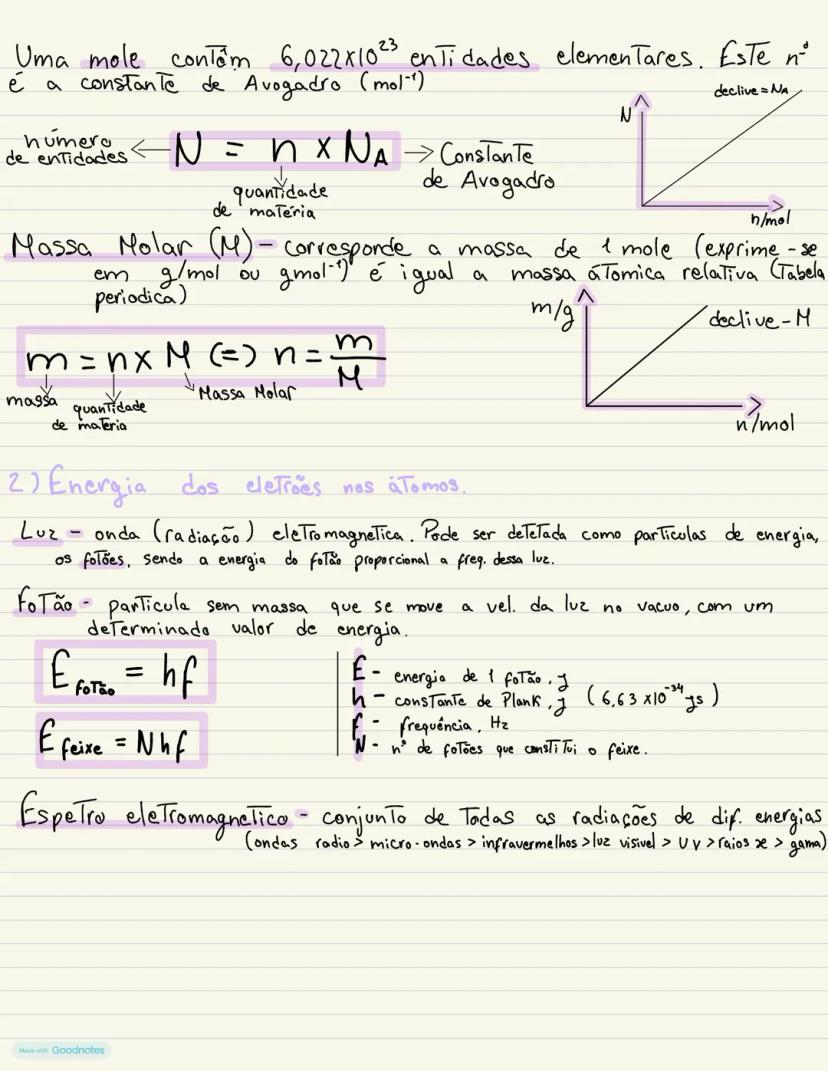 Uma mole contêm 6,022x10²³ entidades elementares. Este nº
é a constante de Avogadro (mol⁻¹)
declive = NA
N
n/mol
número
de entidades
N = n x NA
Constante
de Avogadro
quantidade
de matéria
Massa Molar (M) - corresponde a massa de 1 mole (exprime-se
em g/mol ou gmol⁻¹) é igual a massa átomica relativa (Tabela
periodica)
m/g
declive - M
n/mol
m = n x M (=) n = m/M
massa
quantidade
de materia
Massa Molar
2) Energia dos eletrões nos átomos.
Luz - onda (radiação) eletromagnetica. Pode ser detetada como particulas de energia,
os fotões, sendo a energia do fotão proporcional a freq. dessa luz.
Fotão - particula sem massa que se move a vel. da luz no vacuo, com um
determinado valor de energia.
E fotão = hf
E feixe = Nhf
E - energia de 1 fotão, J
h - constante de Plank, J (6,63 x10⁻³⁴ Js)
f - frequência, Hz
N - nº de fotões que constitui o feixe.
Espetro eletromagnetico - conjunto de todas as radiações de dif. energias
(ondas radio > micro-ondas > infravermelhos > luz visivel > UV > raios x > gama)
Made with Goodnotes